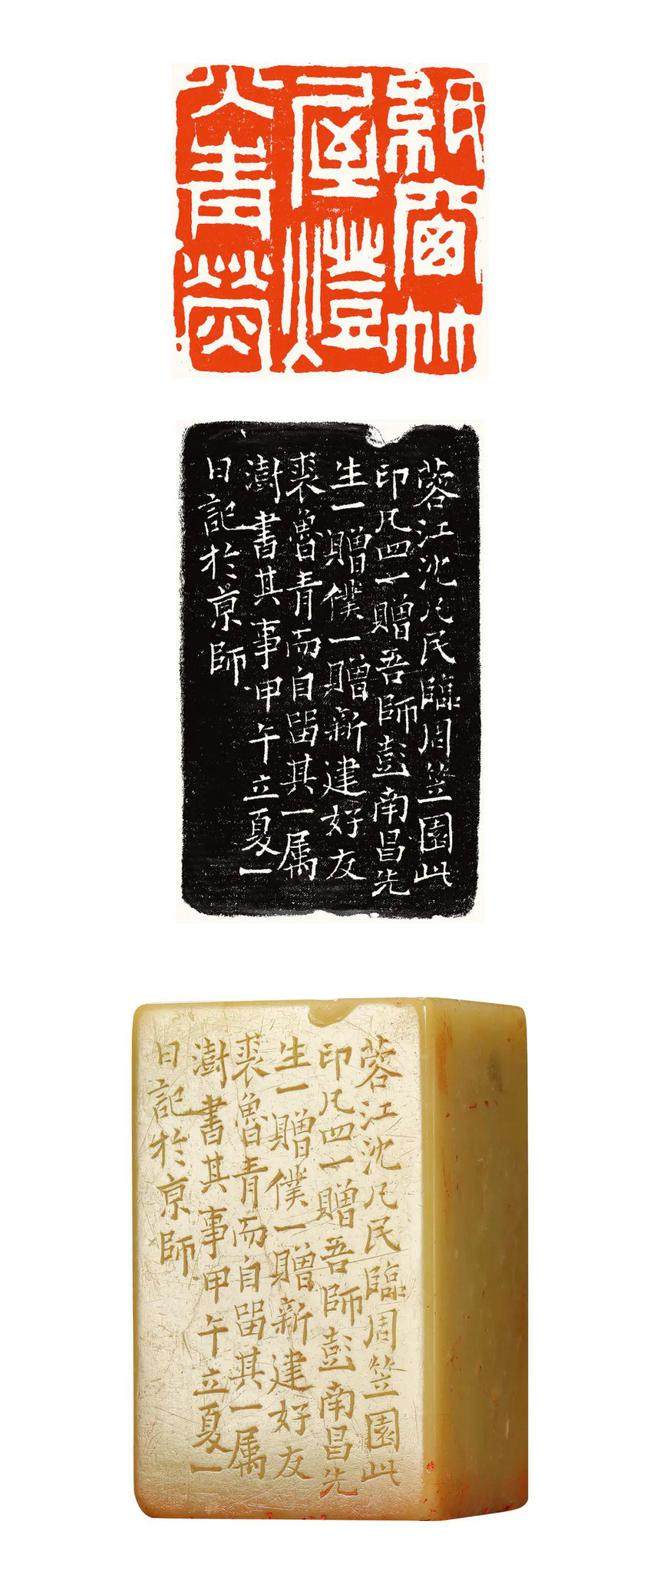 紙窗竹
屋燈
火青熒
蓉江沈凡民臨周笠園此
印凡四一贈吾師彭南昌先
生一贈僕一贈新建好友
裘魯青而自留其一属
澍書其事甲午立夏一
日記於亰師
蓉江沈凡民臨周笠園此
印凡四一贈吾師彭南昌先
生一贈僕一贈新建好友
裘魯青而自留其一属
澍書其事甲午立夏一
日記於亰師